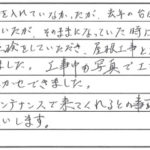 を入れていなかったが、去年の台
いたが、そのままになっていた時に
をしていただき、屋根工事と
ました。工事中の写真で工
かせできました。
ンテナンスで来てくれるとの事
いします。